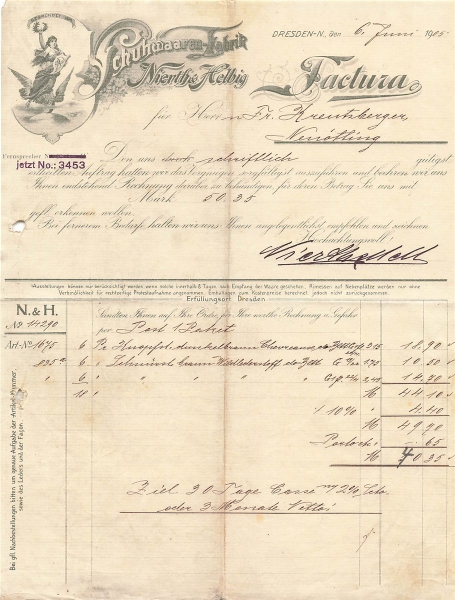 Schuhwaaren-Fabrik
Nierth & Helbig
DRESDEN-N., den 6. Juni 1905
Factura
für Herrn Fr. Kreutzberger,
Neuötting
Fernsprecher
jetzt No.: 3453
Den uns schriftlich gütigst
erteilten Auftrag hatten wir das Vergnügen sorgfältigst auszuführen und beehren wir uns
Ihnen anstehend Rechnung darüber zu behändigen, für deren Betrag Sie uns mit
Mark 50.35
gefl. erkennen wollen.
Bei fernerem Bedarfe halten wir uns Ihnen angelegentlichst empfohlen und zeichnen
Hochachtungsvoll!
Ausstellungen können nur berücksichtigt werden, wenn solche innerhalb 8 Tagen nach Empfang der Waare geschehen. Rimessen auf Nebenplätze werden nur ohne
Verbindlichkeit für rechtzeitige Protestaufnahme angenommen. Einholungen zum Kostenpreise berechnet, jedoch nicht zurückgenommen.
Erfüllungsort Dresden
N. & H.
No 14290
Sandten Ihnen auf Ihre Ordre, für Ihre werthe Rechnung u. Gefahr
per Post 1 Paket
Art-No 1675 6 Pr. Knopfst. dunkelbraun 2.15 12.90
835 6 " Schnürst. braun 1.75 10.50
" 6 " " " " 2.40
" M 44.10
/ 10% " 4.40
M
Porto " -.65
M 40.35
Ziel 30 Tage Casse m/ 2% Sco.
oder 3 Monate Netto!
Bei gfl. Nachbestellungen bitten um genaue Aufgabe der Artikel-Nummer,
sowie des Leders und der Façon.